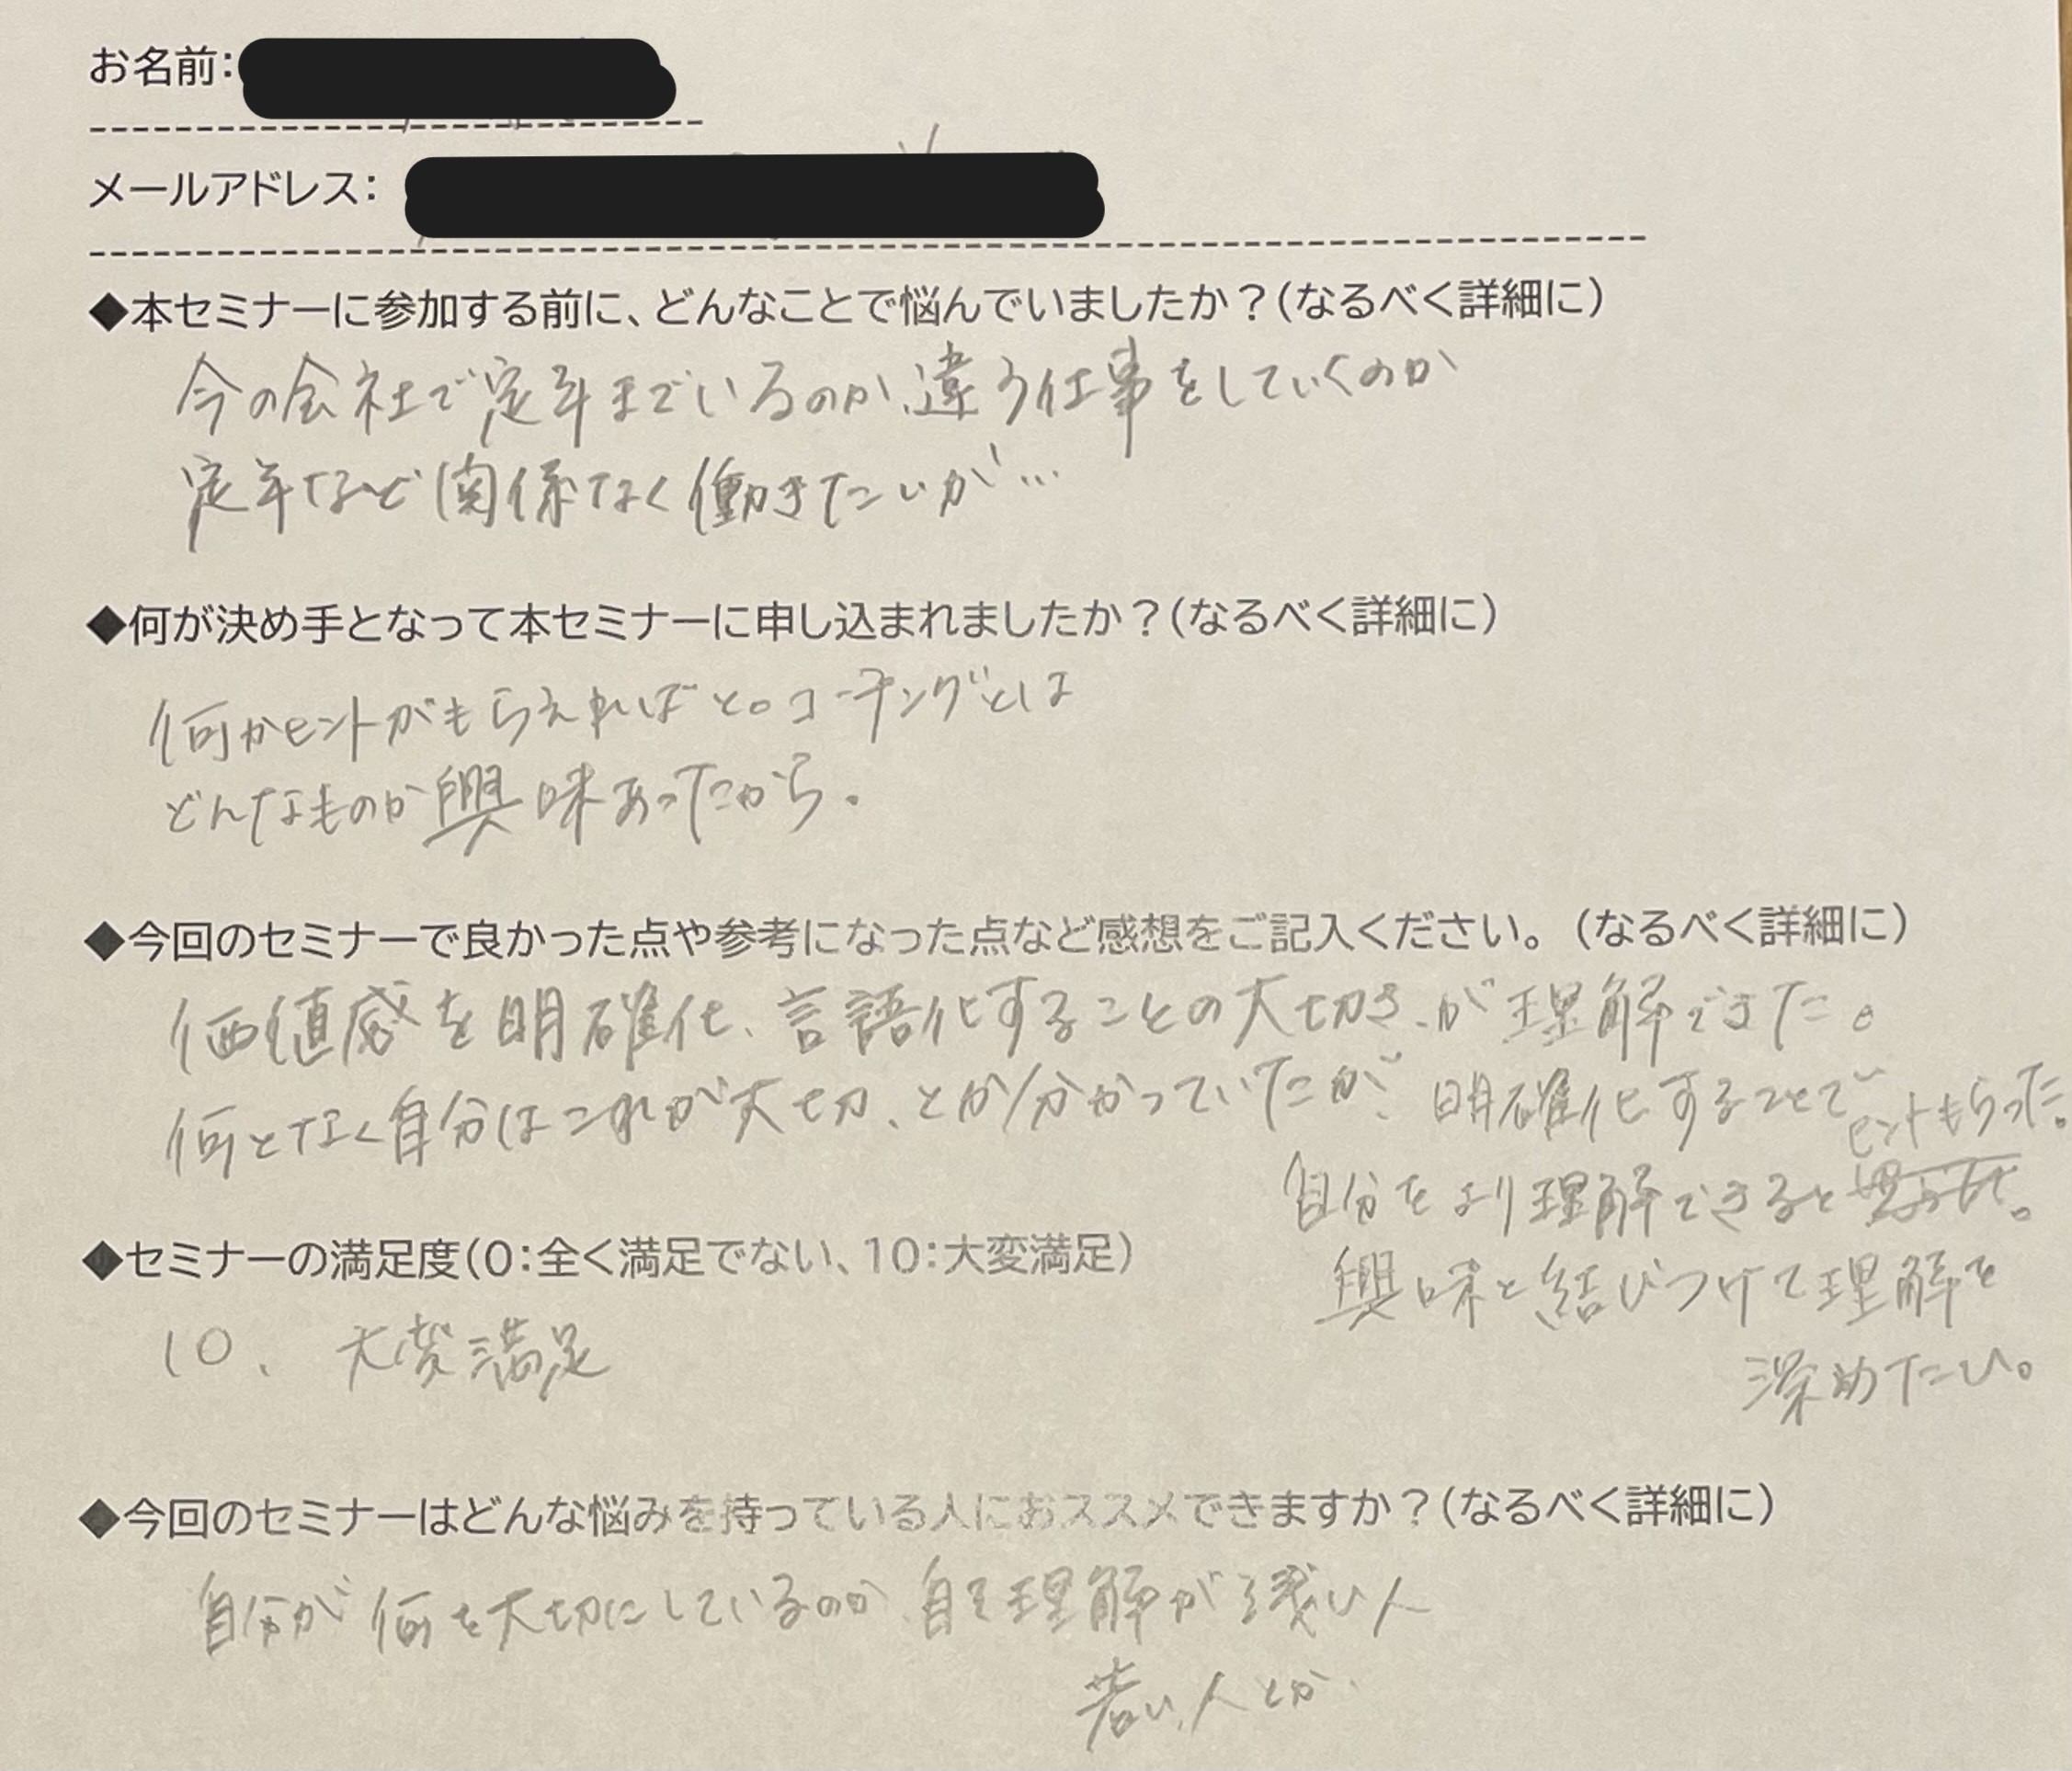 お名前：
メールアドレス：
◆本セミナーに参加する前に、どんなことで悩んでいましたか？（なるべく詳細に）
今の会社で定年までいるのか、違う仕事をしていくのか
定年など関係なく働きたいが…
◆何が決め手となって本セミナーに申し込まれましたか？（なるべく詳細に）
何かヒントがもらえればと。コーチングとは
どんなものか興味あったから。
◆今回のセミナーで良かった点や参考になった点など感想をご記入ください。（なるべく詳細に）
価値感を明確化、言語化することの大切さが理解できた。
何となく自分はこれが大切、とか分かっていたが、明確化することで
ヒントもらった。
自分をより理解できると
興味と結びつけて理解を
深めたい。
◆セミナーの満足度（0：全く満足でない、10：大変満足）
10、大変満足
◆今回のセミナーはどんな悩みを持っている人におススメできますか？（なるべく詳細に）
自分が何を大切にしているのか、自己理解が浅い人
若い人とか